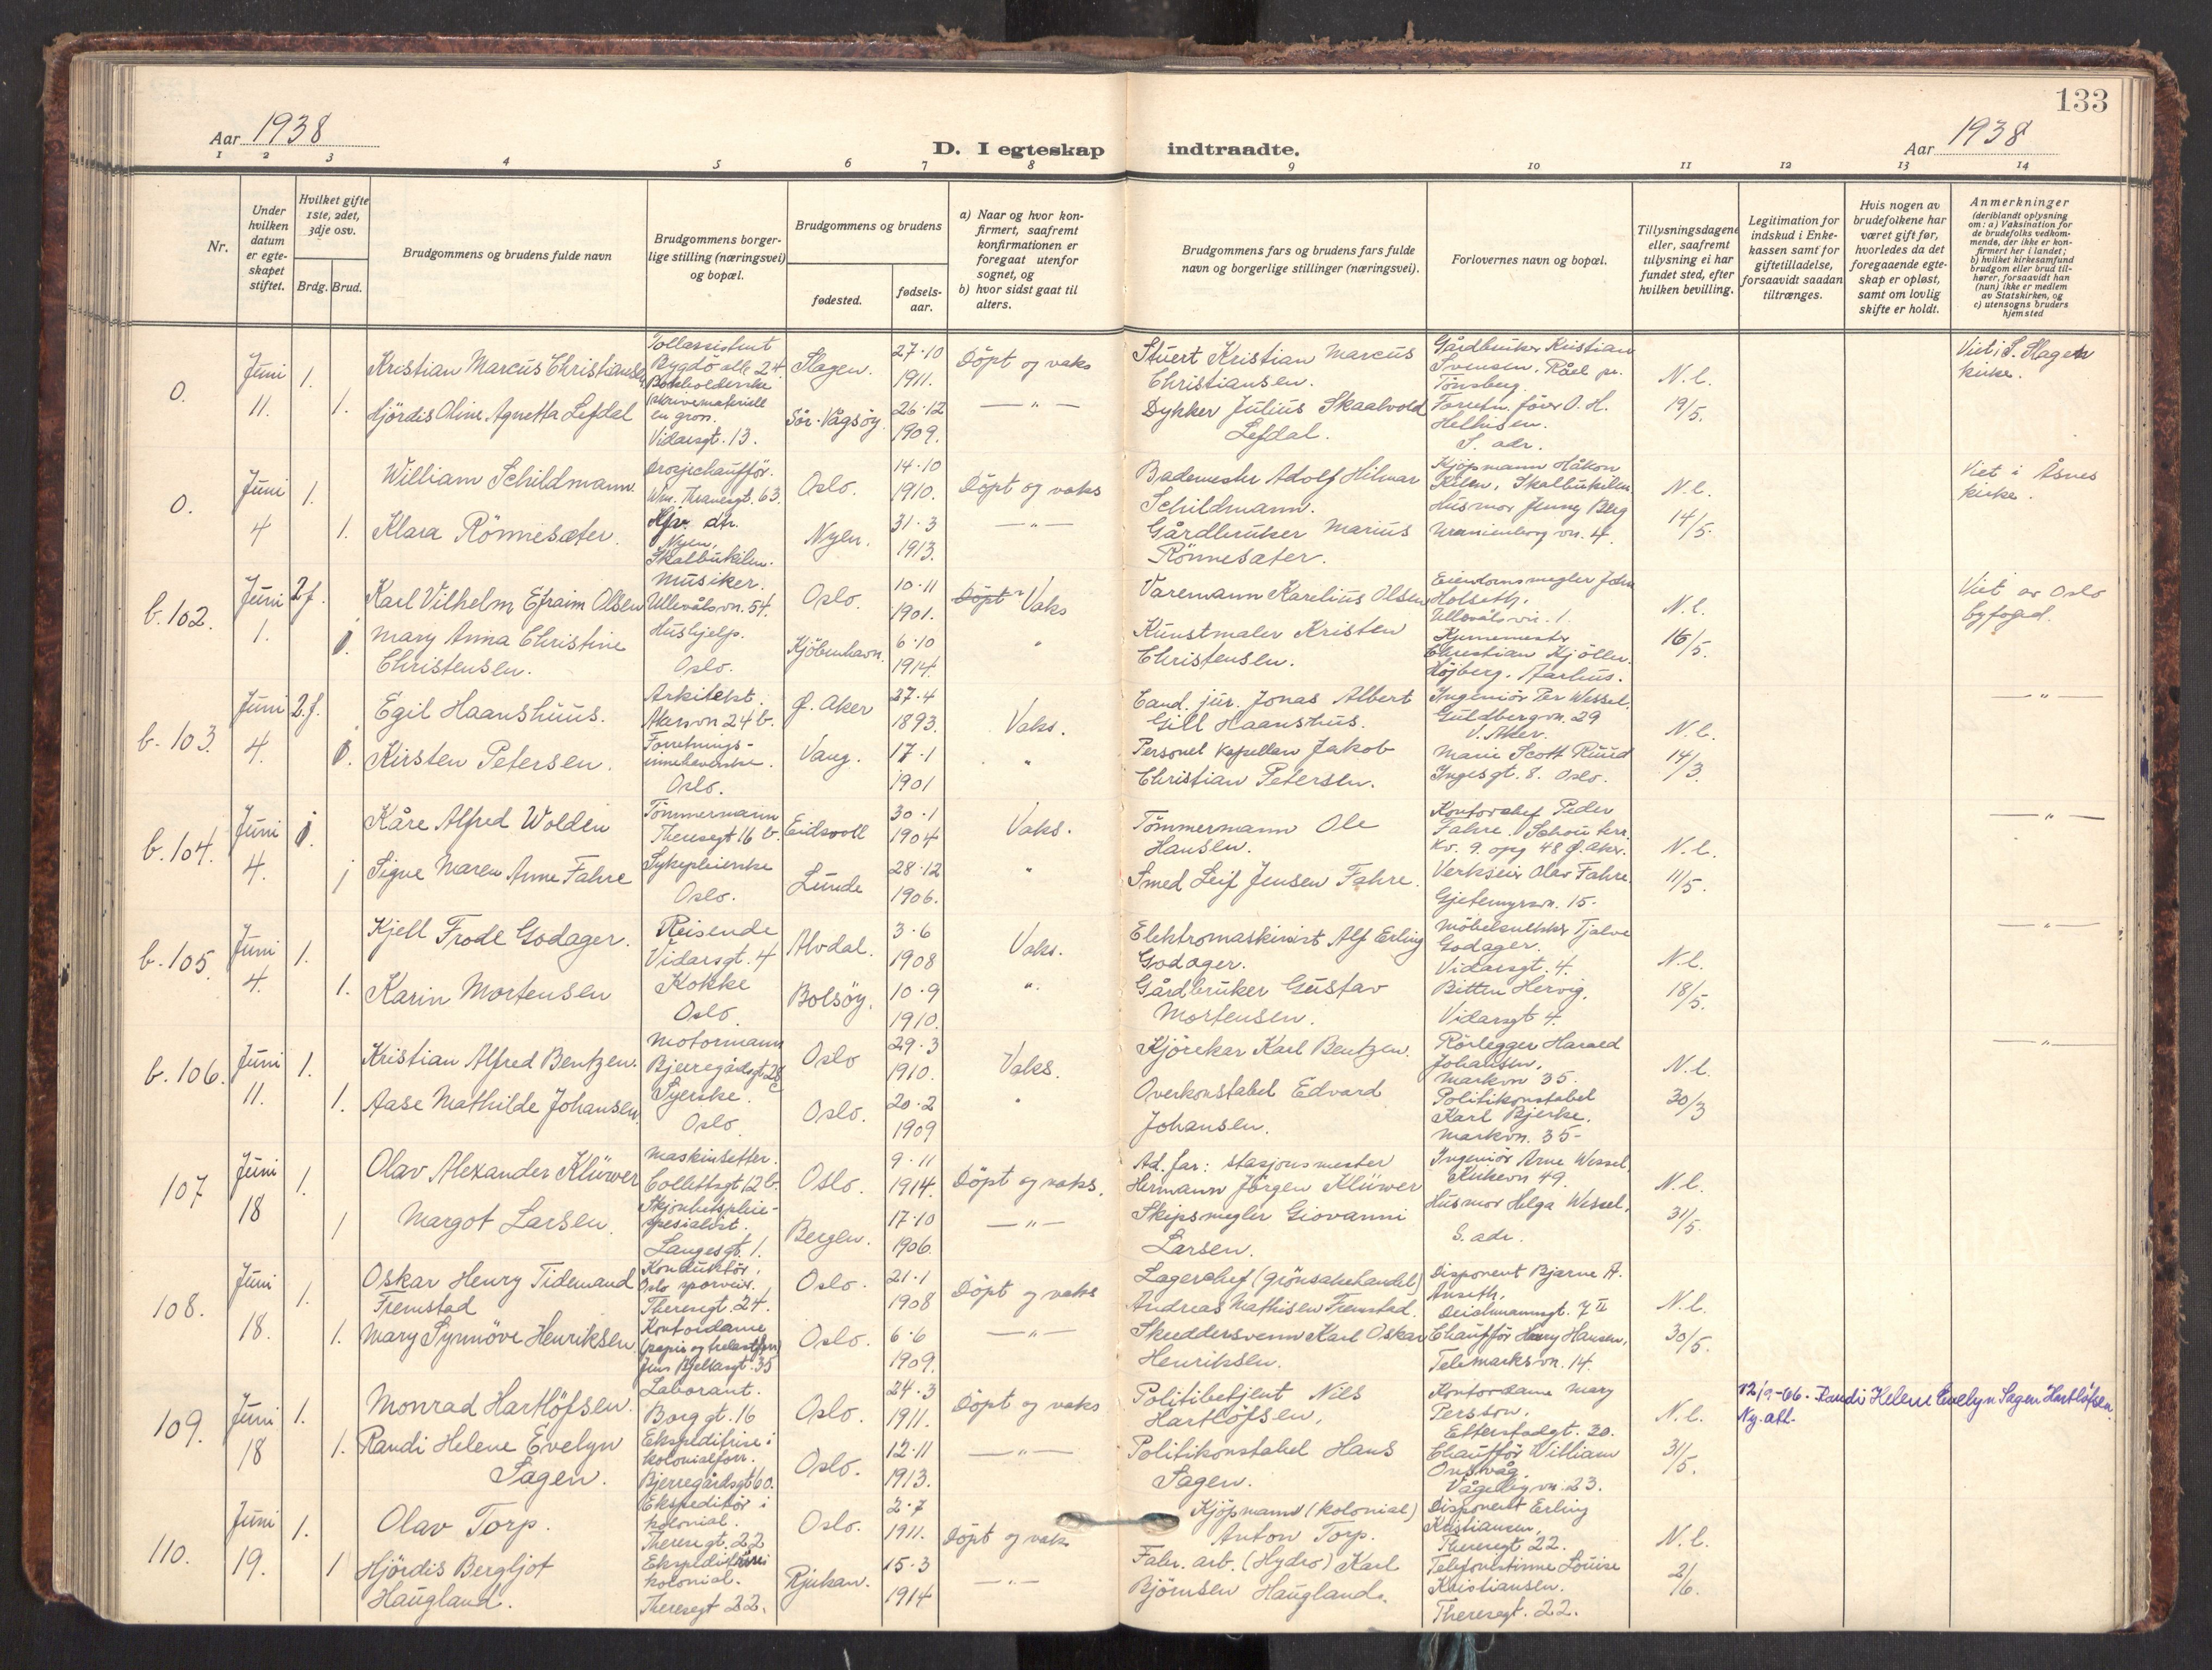 133
Aar 1938
D. I egteskap indtraadte.
Aar 1938
1 2 3 4 5 6 7 8 9 10 11 12 13 14
Nr.
Under hvilken datum er egteskapet stiftet.
Hvilket gifte 1ste, 2det, 3dje osv.
Brdg. Brud.
Brudgommens og brudens fulde navn
Brudgommens borgerlige stilling (næringsvei) og bopæl.
Brudgommens og brudens
fødested.
fødselsaar.
a) Naar og hvor konfirmert, saafremt konfirmationen er foregaat utenfor sognet, og
b) hvor sidst gaat til alters.
Brudgommens fars og brudens fars fulde navn og borgerlige stillinger (næringsvei).
Forlovernes navn og bopæl.
Tillysningsdagene eller, saafremt tillysning ei har fundet sted, efter hvilken bevilling.
Legitimation for indskud i Enkekassen samt for giftetilladelse, forsaavidt saadan tiltrænges.
Hvis nogen av brudefolkene har været gift før, hvorledes da det foregaaende egteskap er opløst, samt om lovlig skifte er holdt.
Anmerkninger
(deriblandt oplysning om: a) Vaksination for de brudefolks vedkommende, der ikke er konfirmert her i landet;
b) hvilket kirkesamfund brudgom eller brud tilhører, forsaavidt han (hun) ikke er medlem av Statskirken, og
c) utensogns bruders hjemsted
0. Juni 11. 1. Kristian Marcus Christiansen Tollassistent Bygdö alle 24. Slagen. 27.10 1911. Döpt og vaks Stuert Kristian Marcus Christiansen. Gårdbruker Kristian Svensen, Råel pr. Tønsberg. N.l. 19/5. Viet i S. Slagen kirke.
1. Hjördis Oline Agnetta Lefdal Bokholderske skrivemateriell en gros. Vidarsgt. 13. Sör-Vågsöy. 26.12 1909. — " — Dykker Julius Skaalvold Lefdal. O. H. S. adr.
0. Juni 4 1. William Schildmann Drosjechaufför. Wm. Thranesgt. 63. Oslo. 14.10 1910. Döpt og vaks Bademester Adolf Hilmar Schildmann. Kjöpmann Håkon Kilen, Skalbukilen. N.l. 14/5. Viet i Åsnes kirke.
1. Klara Rönnesæter. dtr. Nyen, Skalbukilen. Nyen. 31.3 1913. — " — Gårdbruker Marius Rönnesæter. Husmor Jenny Berg Uranienborg vn. 4.
b. 102. Juni 1. 2 f. Karl Vilhelm Efraim Olsen Musiker. Ullevålsvn. 54. Oslo. 10.11 1901. Döpt Vaks Varemann Karelius Olsen Eiendomsmegler John Holseth. Ullevålsvn. 1. N.l. 16/5. Viet av Oslo byfogd.
Mary Anna Christine Christensen. Hushjelp. Oslo. Kjöbenhavn. 6.10 1914. " Kunstmaler Kristen Christensen. Christian Kjöller. Höjberg. Aarhus.
b. 103. Juni 4. 2. f. Egil Haanshuus. Arkitekt. Akersvn 24 b. Ø. Aker 27.4 1893. Vaks. Cand. jur. Jonas Albert Gill Haanshus. Ingeniör Per Wessel. Guldbergvn. 29 V. Aker. N.l. 14/3. — " —
Kirsten Petersen. Forretningsinnehaverske. Oslo. Vang. 17.1 1901 " Personel kapellan Jakob Christian Petersen. Marie Scott Ruud Ingesgt. 8. Oslo.
b. 104. Juni 4. Kåre Alfred Wolden Tömmermann Theresegt 16 b. Eidsvoll 30.1 1904 Vaks. Tömmermann Ole Hansen. Kontorchef Peder Fahre. Schou terr. Kv. 9. opg 48 Ø. Aker. N.l. 11/5. — " —
Signe Maren Anne Fahre Sykepleierske Oslo. Lunde 28.12 1906. " Smed Leif Jensen Fahre. Verkseier Olav Fahre. Gjetemyrsvn. 15.
b. 105. Juni 4. 1. Kjell Frode Godager. Reisende Vidarsgt. 4 Alvdal. 3.6 1908 Vaks. Elektromaskinist Alf Erling Godager. Möbelsnekker Tjalve Godager. Vidarsgt. 4. N.l. 18/5. — " —
1. Karin Mortensen Kokke Oslo. Bolsöy. 10.9 1910. " Gårdbruker Gustav Mortensen. Bitten Hervig. Vidarsgt 4.
b. 106. Juni 11. 1. Kristian Alfred Bentzen. Motormann Bjerregårdsgt 28 c Oslo 29.3 1910. Vaks. Kjörekar Karl Bentzen. Rörlegger Harald Johansen, Markvn 35. N.l. 30/3 — " —
1. Aase Mathilde Johansen. Syerske. Oslo. Oslo. 20.2 1909 " Overkonstabel Edvard Johansen. Politikonstabel Karl Bjerke. Markvn. 35
107 Juni 18 1. Olav Alexander Klüwer Maskinsetter. Collettsgt 12 b. Oslo. 9.11 1914. Döpt og vaks. Ad. far: stasjonsmester Hermann Jörgen Klüwer Ingeniör Arne Wessel, Kirkevn 49. N.l. 31/5.
1 Margot Larsen. Skjönhetspleiespesialist. Langesgt. 1. Bergen. 17.10 1906. — " — Skipsmegler Giovanni Larsen. Husmor Helga Wessel, S. adr.
108. Juni 18. 1. Oskar Henry Tidemand Fremstad Konduktör, Oslo sporveier. Theresegt. 24. Oslo. 21.1 1908 Döpt og vaks Lagerchef (grönsakehandel) Andreas Mathisen Fremstad. Disponent Bjarne A. Anseth, Deichmannsgt. 7 II N.l. 30/5.
1. Mary Synnöve Henriksen. Kontordame Jens Bjelkesgt. 35 Oslo. 6.6 1909. — " — Skreddersvenn Karl Oskar Henriksen. Chaufför Harry Hansen, Telemarksvn. 14.
109. Juni 18 1. Monrad Hartlöfsen. Laborant. Borggt. 16 Oslo. 24.3 1911. Döpt og vaks Politibetjent Nils Hartlöfsen, Kontordame Mary Persson. Etterstadgt. 20. N.l. 31/5. 12/9-66. Randi Helene Evelyn Sagen Hartlöfsen. Ny att.
1. Randi Helene Evelyn Sagen. Ekspeditrise i kolonialforr. Bjerregårdsgt 60. Oslo. 12.11 1913. — " — Politikonstabel Hans Sagen. Chaufför William Onsvåg. 23.
110. Juni 19. 1. Olav Torp. Ekspeditör i kolonial. Theresegt. 22 Oslo. 2.7 1911. Döpt og vaks Kjöpmann (kolonial) Anton Torp. Disponent Erling Kristiansen, Theresegt 22. N.l. 2/6.
1 Hjördis Bergljot Haugland. Ekspeditrise i kolonial. Theresegt 22. Rjukan. 15.3 1914 — " — Fabr. arb. (Hydro) Karl Björnsen Haugland. Telefonistinne Louise Kristiansen. Theresegt. 22.